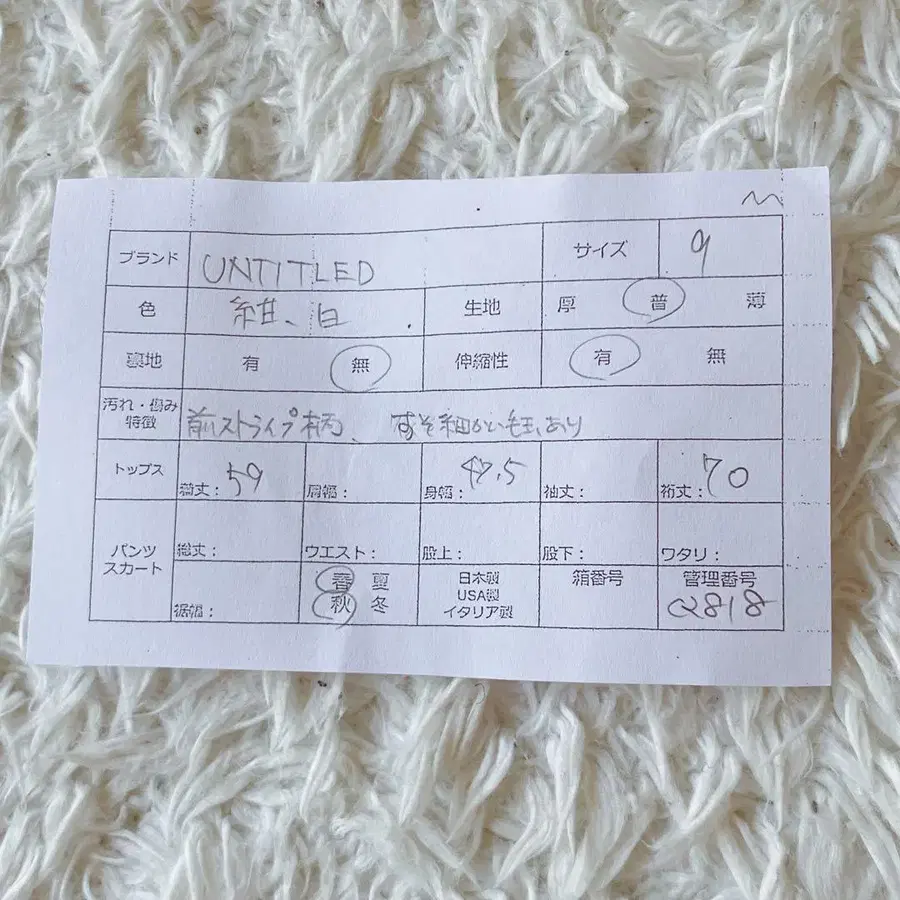 ブランド UNTITLED サイズ 9
色 紺、白 生地 厚 普 薄
裏地 有 無 伸縮性 有 無
汚れ・傷み
特徴 前ストライプ柄、すそ細かい毛玉あり
トップス 着丈：59 肩幅： 身幅：47.5 袖丈： 裄丈：70
パンツ
スカート 総丈： ウエスト： 股上： 股下： ワタリ：
裾幅： 春 夏 秋 冬 日本製 USA製 イタリア製 箱番号 管理番号 Q2818